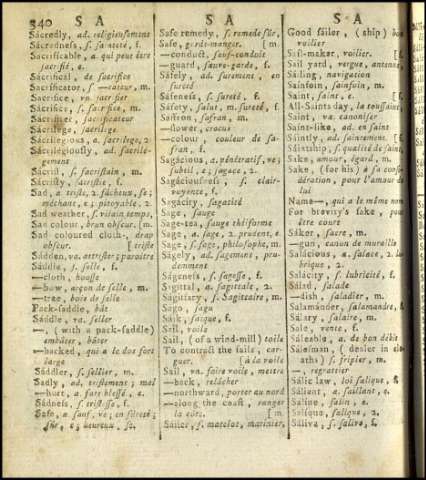 340 S A
Sácredly, ad. religieusement
Sácredness, s. sainteté, f.
Sacrificable, a. qui peut être
sacrifié, e.
Sacrifical, de sacrifice
Sacrificator, s. —cateur, m.
Sácrifice, va. sacrifier
Sácrifice, s. sacrifice, m.
Sácrificer, sacrificateur
Sácrilege, sacrilege
Sacrilegious, a. sacrilege, 2
Sacrilégiously, ad. sacrile-
gement
Sácristan, s. sacristain, m.
Sácristy, sacristie, f.
Sad, a. triste, 2, fâcheux, se;
méchant, e; pitoyable, 2.
Sad weather, s. vilain temps,
Sad colour, brun obscur. [m
Sad coloured cloth, drap
obscur. [triste
Sádden, va. attrister; paroître
Sáddle, s. selle, f.
—cloth, housse
—bow, arçon de selle, m.
—tree, bois de selle
Pack-saddle, bât
Sáddle, va. seller
—, (with a pack-saddle)
embâter, bâter
—backed, qui a le dos fort
large
Sáddler, s. sellier, m.
Sadly, ad. tristement; mal
—hurt, a. fort blessé, e
Sádness, s. tristesse, f.
Safe, a. sauf, ve; en sûreté;
sûr, e; heureux, se.
S A
Safe remedy, s. remede sûr,
Safe, garde-manger. [m
—conduct, sauf-conduit
—guard, sauve-garde, f.
Sáfely, ad. surement, en
sureté
Sáfeness, s. sureté, f.
Sáfety, salut, m. sureté, f.
Saffron, safran, m.
—flower, crocus
—colour, couleur de sa-
fran, f.
Sagácious, a. pénétratif, ve;
subtil, e; sagace, 2.
Sagáciousness, s. clair-
voyance, f.
Sagácity, sagacité
Sage, sauge
Sage-tea, sauge théiforme
Sage, a. sage, 2. prudent, e.
Sage, s. sage, philosophe, m.
Ságely, ad. sagement, pru-
demment
Ságeness, s. sagesse, f.
Sígittal, a. sagittale, 2.
Ságittary, s. Sagittaire, m.
Sago, sagu
Saik, saïque, f.
Sail, voile
Sail, (of a wind-mill) toile
To contract the sails, car-
guer, [à la voile
Sail, vn. faire voile, mettre
—back, relâcher
—northward, porter au nord
—along the coast, ranger
la côte. [m.
Sáiler, s. matelot, marinier,
S A
Good sáiler, (ship) bon
voilier [f.
Sail-maker, voilier.
Sail yard, vergue, antenne,
Sáiling, navigation
Sainfoin, sainfoin, m.
Saint, saint, e. [f.
All-Saints day, la toussaint,
Saint, va. canoniser
Saint-like, ad. en saint
Sáintly, ad. saintement. [f.
Sáintship, s. qualité de saint,
Sake, amour, égard, m.
Sake, (for his) à sa consi-
dération, pour l'amour de
lui
Name—, qui a le même nom
For brevity's sake, pour
être court
Sáker, sacre, m.
—gun, canon de muraille
Salácious, a. salace, 2. lu-
brique, 2.
Salácity, s. lubricité, f.
Sálad, salade
—dish, saladier, m.
Salamánder, salamandre, f.
Sálary, salaire, m.
Sale, vente, f.
Sáleable, a. de bon débit
Sálesman, (dealer in clo-
aths) s. fripier, m.
—, regrattier
Sálic law, loi salique, f.
Sáliant, a. saillant, e.
Sáline, salin, e.
Salique, salique, 2.
Sáliva, s. salive, f.